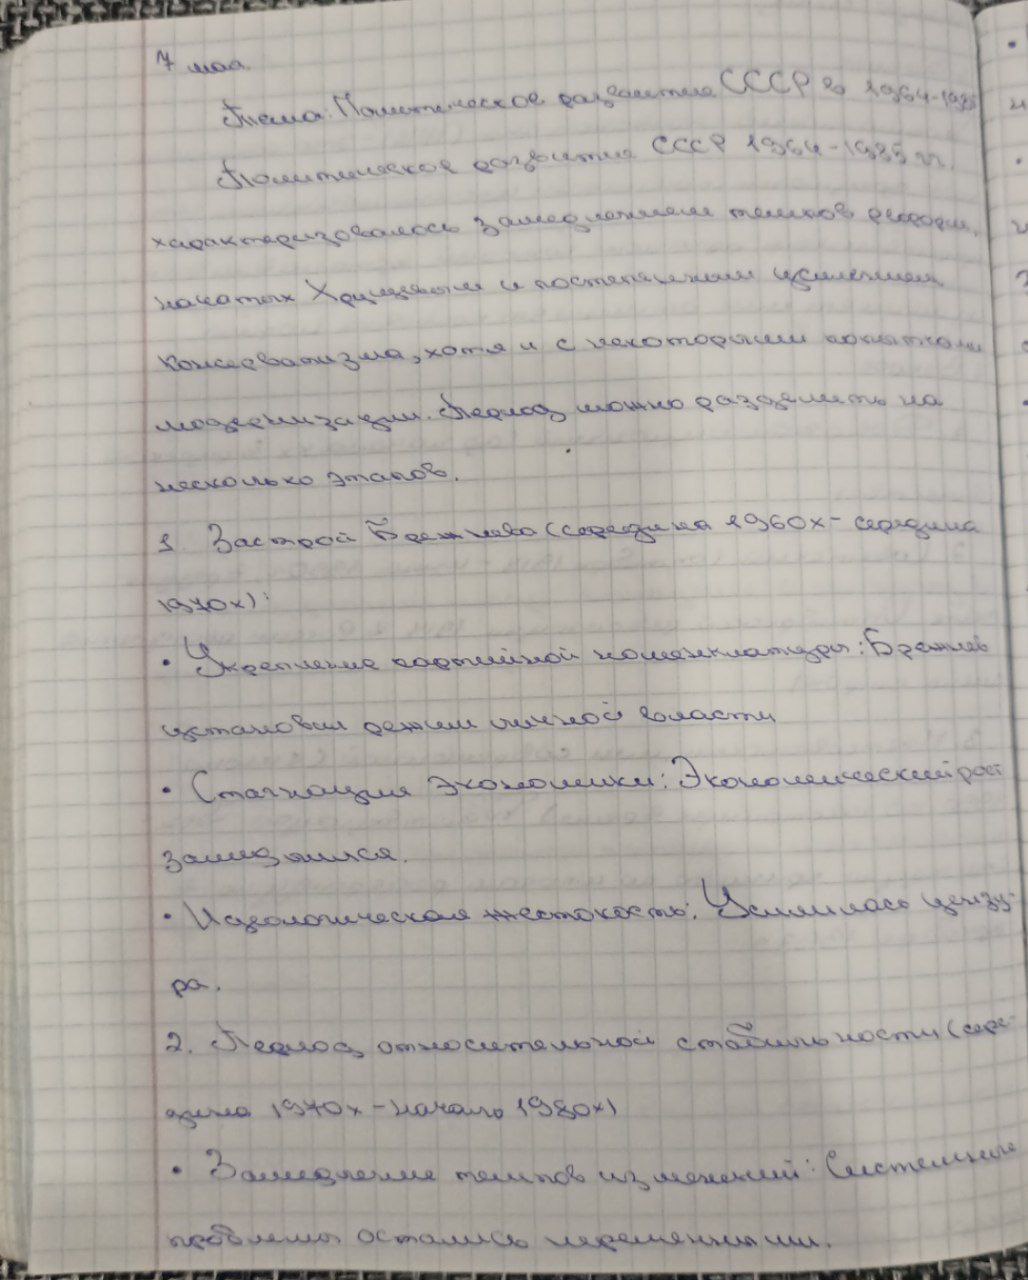 7 мая.
Тема: Политическое развитие СССР в 1964-1985
Политическое развитие СССР 1964-1985 гг.
характеризовалось замедлением темпов реформ,
начатых Хрущевым и постепенным усилением
консерватизма, хотя и с некоторыми попытками
модернизации. Период можно разделить на
несколько этапов.
1. Застой Брежнева (середина 1960х- середина
1970х):
• Укрепление партийной номенклатуры: Брежнев
установил режим личной власти
• Стагнация экономики: Экономический рост
замедлился.
• Идеологическая жестокость: Усилилась цензу-
ра.
2. Период относительной стабильности (сере-
дина 1970х-начало 1980х)
• Замедление темпов изменений: Системные
проблемы остались